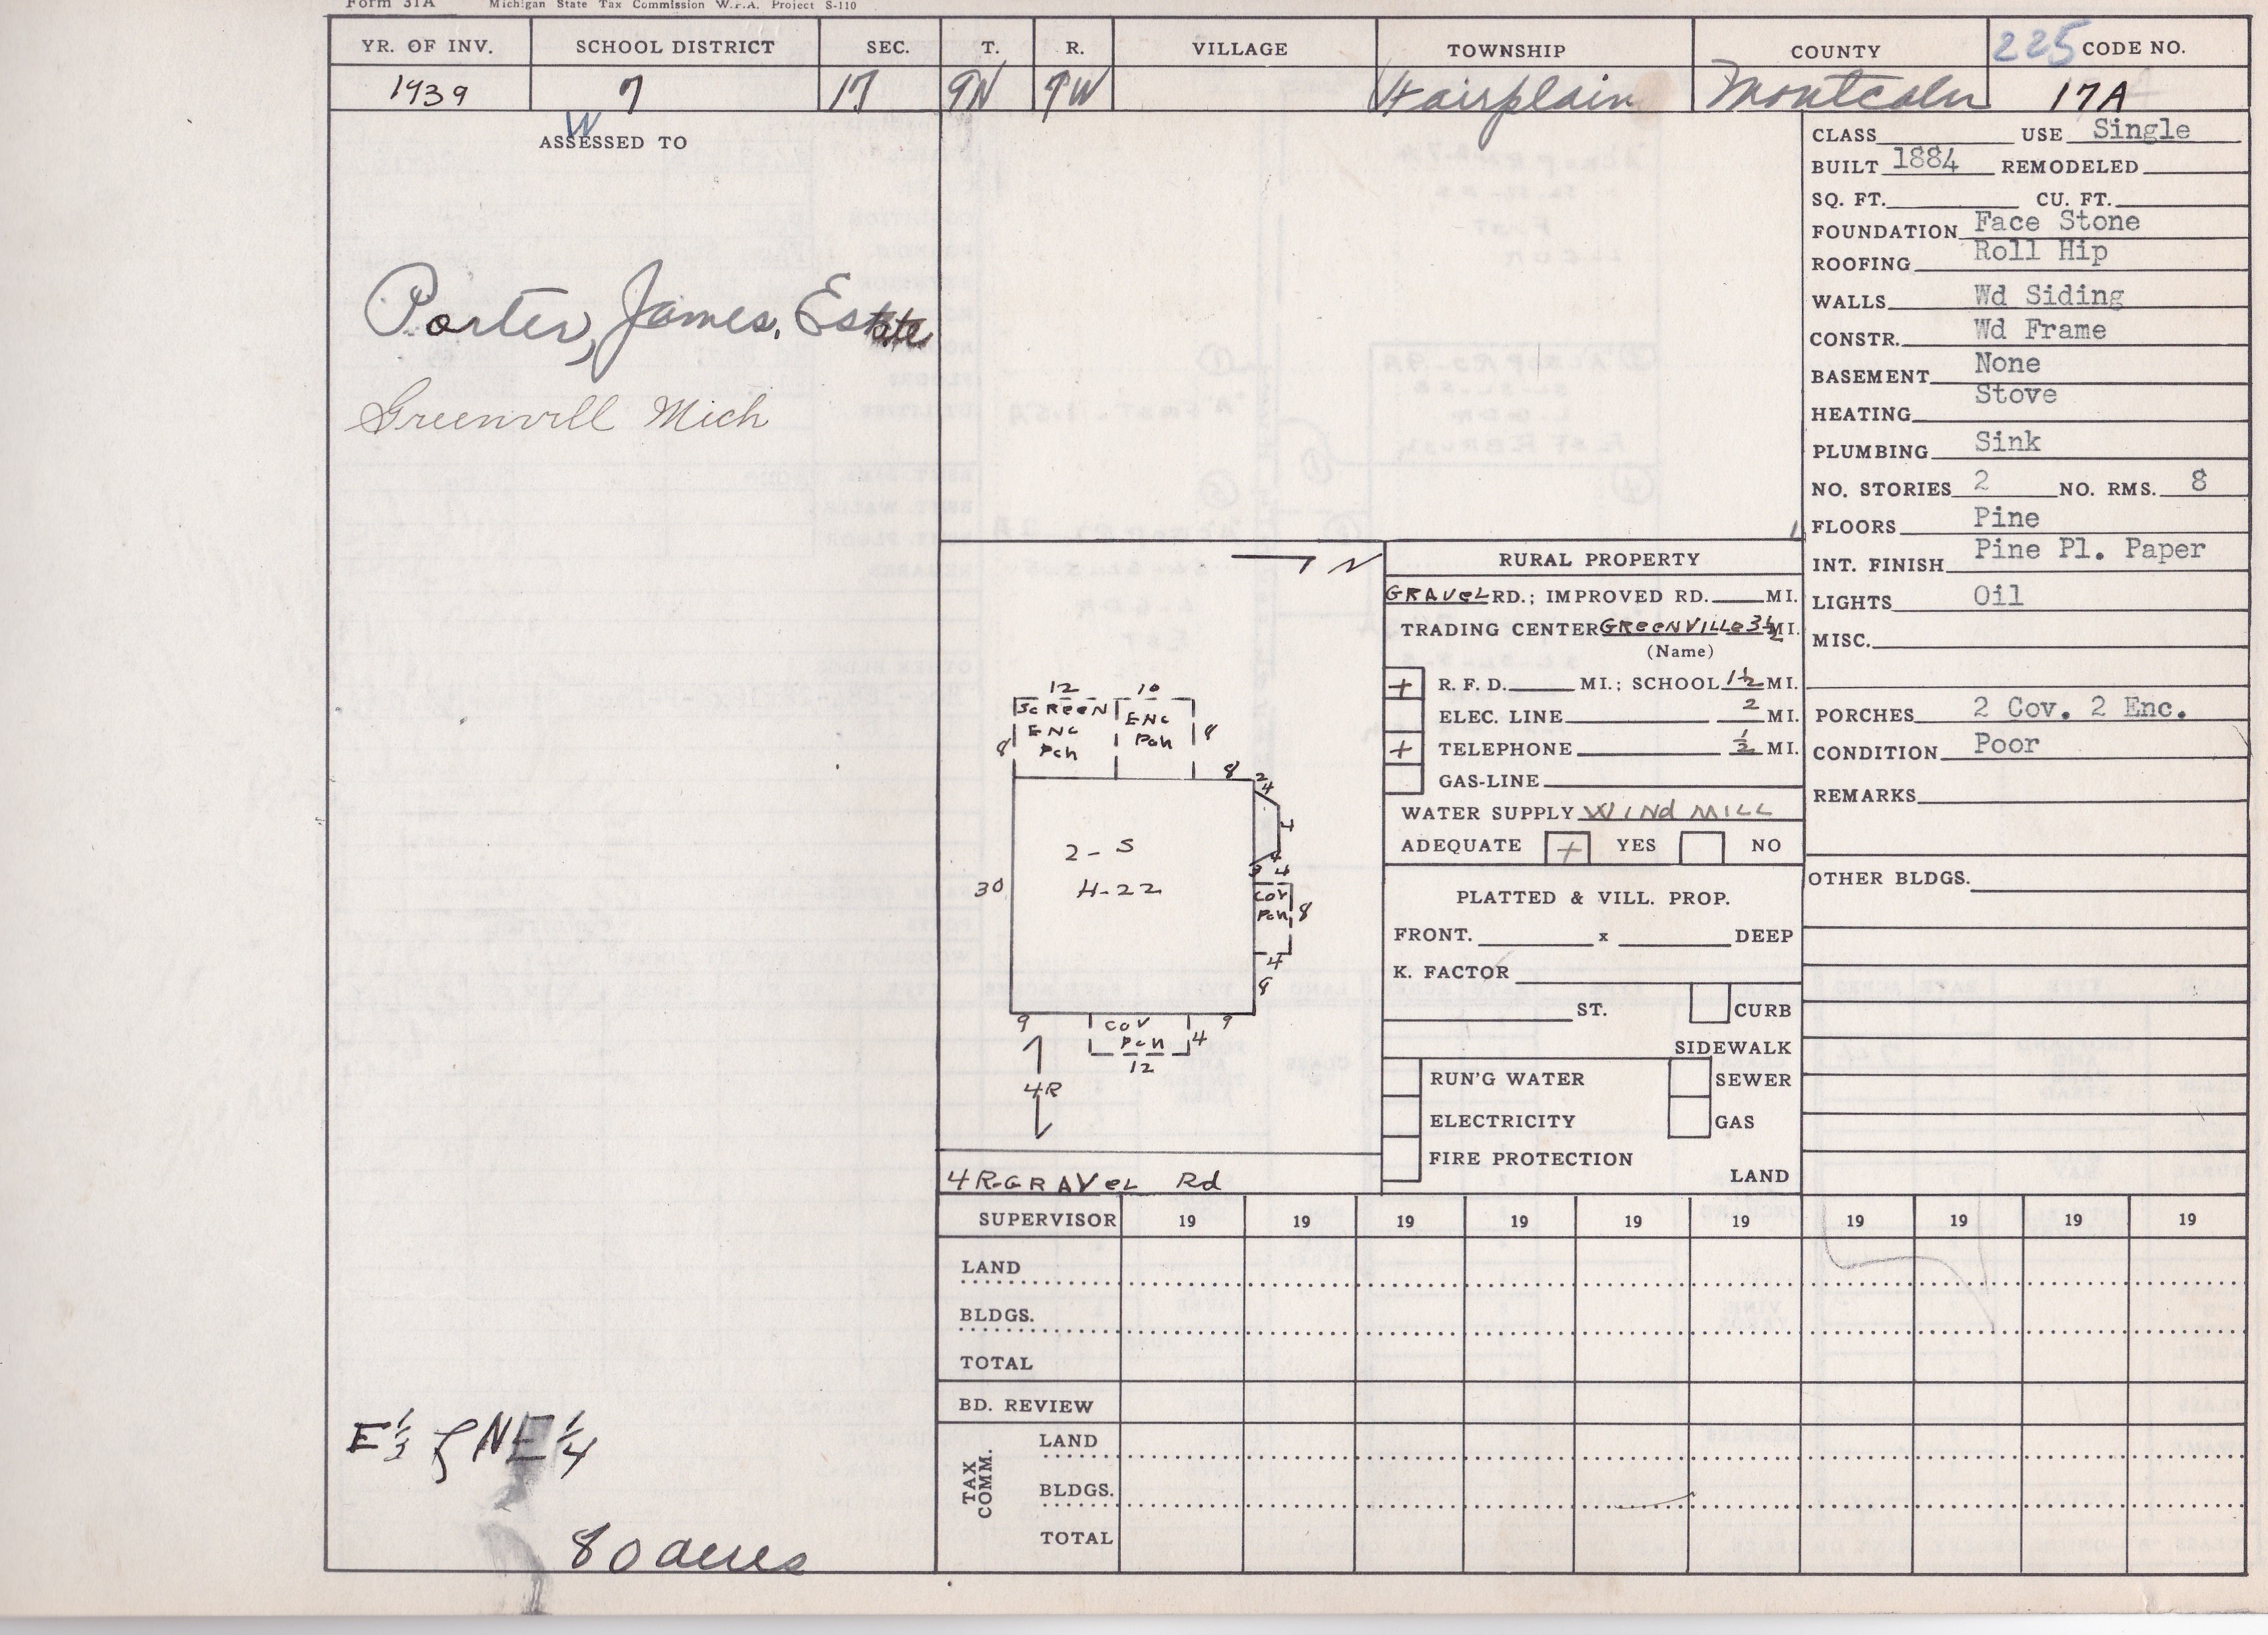 Form 31A Michigan State Tax Commission W.P.A. Project S-110
YR. OF INV. SCHOOL DISTRICT SEC. T. R. VILLAGE TOWNSHIP COUNTY 225 CODE NO.
1939 7 17 9N 7W Fairplain Montcalm 17A
W
ASSESSED TO
Porter, James, Estate
Greenvill Mich
E½ of NE ¼
80 acres
N
12 10
SCREEN ENC Pch
ENC Pch
8 8
8 2 4
4
2-S
H-22
30
3 4 4
COV Pch 8
4
8
9 COV Pch 4 9
12
4R
4R-GRAVEL Rd
RURAL PROPERTY
GRAVEL RD.; IMPROVED RD. MI.
TRADING CENTER GREENVILLE 3½ MI.
(Name)
+ R. F. D. MI.; SCHOOL 1½ MI.
ELEC. LINE 2 MI.
+ TELEPHONE ½ MI.
GAS-LINE
WATER SUPPLY WINd MILL
ADEQUATE + YES NO
PLATTED & VILL. PROP.
FRONT. x DEEP
K. FACTOR
ST. CURB
SIDEWALK
RUN'G WATER SEWER
ELECTRICITY GAS
FIRE PROTECTION
LAND
CLASS USE Single
BUILT 1884 REMODELED
SQ. FT. CU. FT.
FOUNDATION Face Stone
ROOFING Roll Hip
WALLS Wd Siding
CONSTR. Wd Frame
BASEMENT None
HEATING Stove
PLUMBING Sink
NO. STORIES 2 NO. RMS. 8
FLOORS Pine
INT. FINISH Pine Pl. Paper
LIGHTS Oil
MISC.
PORCHES 2 Cov. 2 Enc.
CONDITION Poor
REMARKS
OTHER BLDGS.
SUPERVISOR 19 19 19 19 19 19 19 19 19 19
LAND
BLDGS.
TOTAL
BD. REVIEW
TAX COMM.
LAND
BLDGS.
TOTAL